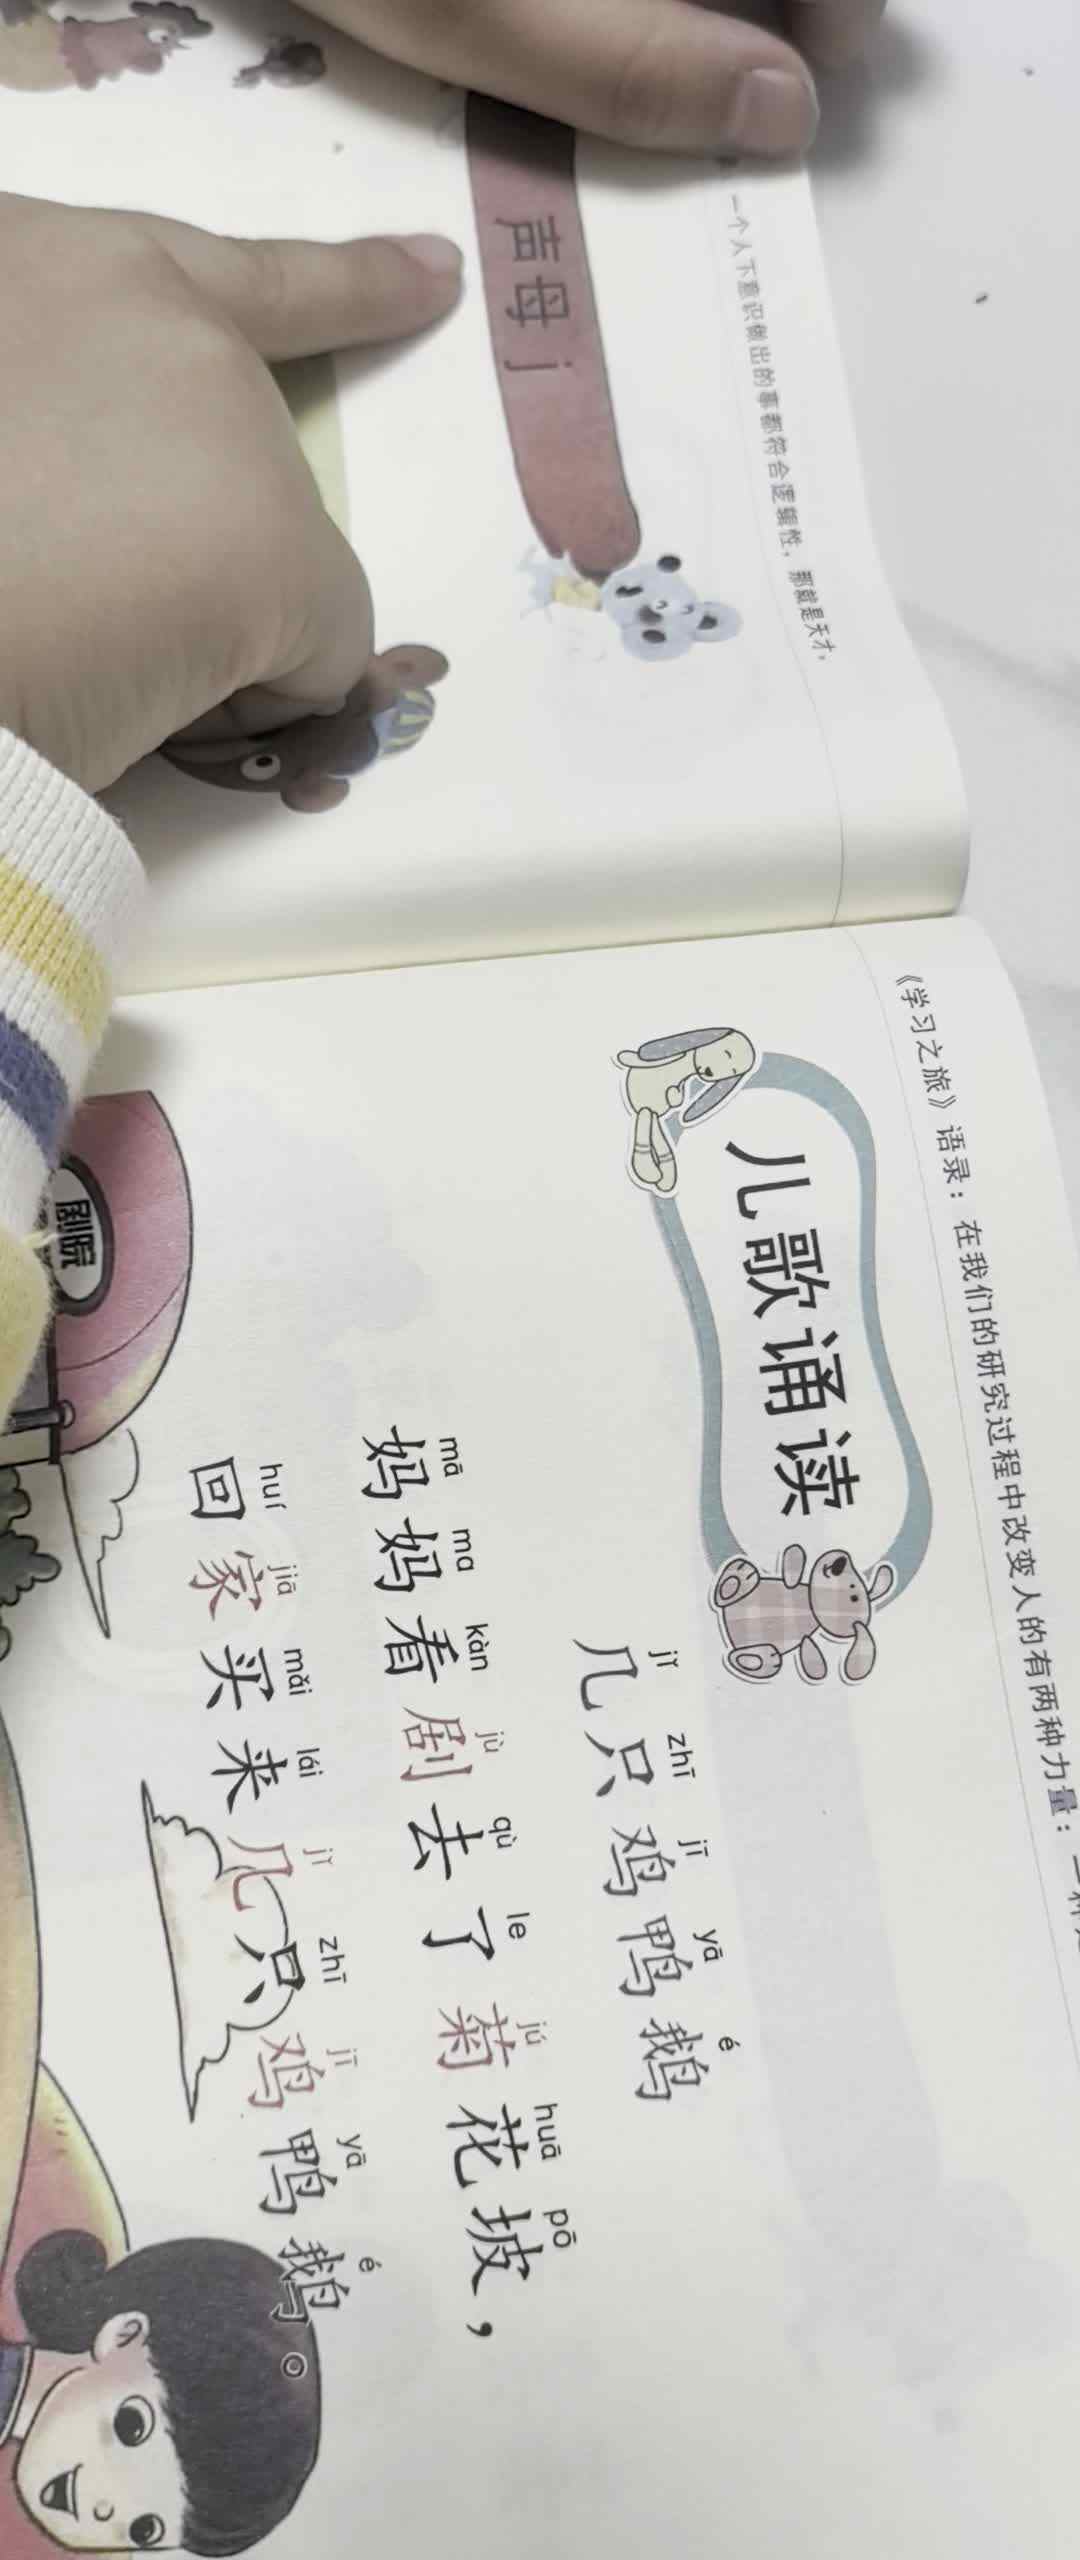 一个人下意识做出的事都符合逻辑性，那就是天才，
声母 j
《学习之旅》语录：在我们的研究过程中改变人的有两种力量：一种
儿歌诵读
jǐ zhī jī yā é
几只鸡鸭鹅
mā ma kàn jù qù le jú huā pō
妈妈看剧去了菊花坡，
huí jiā mǎi lái jǐ zhī jī yā é
回家买来几只鸡鸭鹅。
剧院